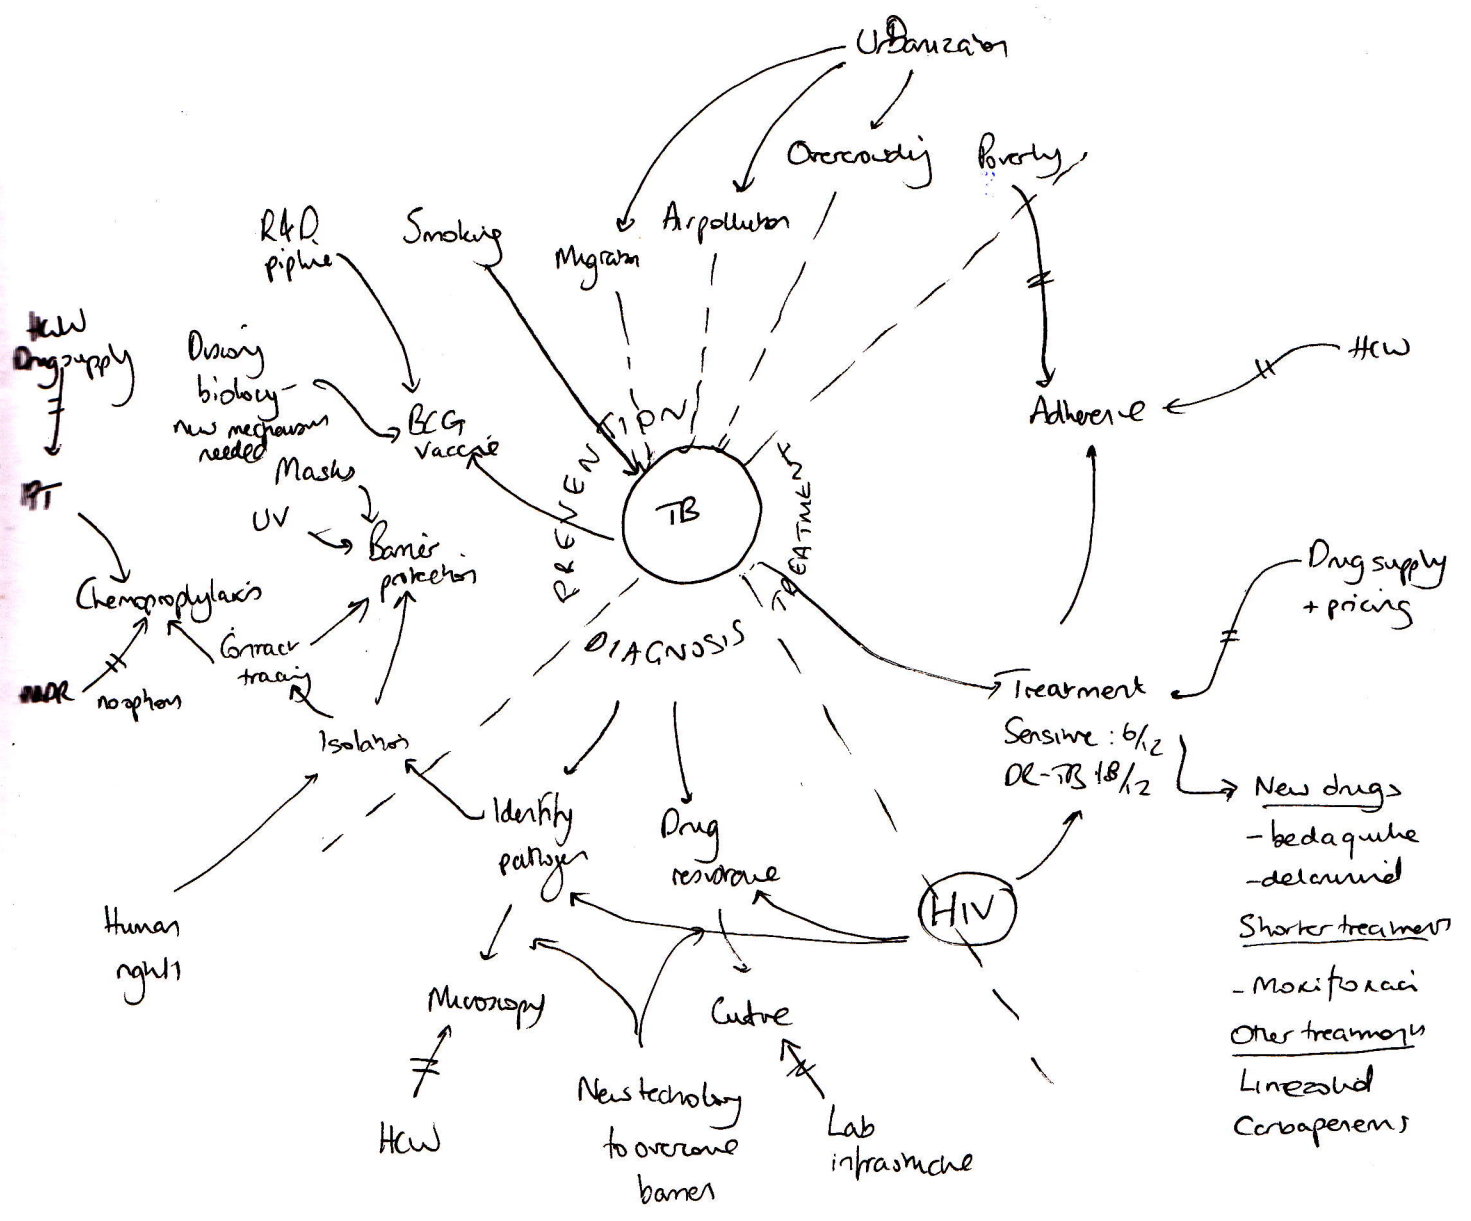 Urbanization
Overcrowding
Poverty
Air pollution
Migration
Smoking
R&D
pipline
HCW
Drug supply
biology
new mechanisms
needed
BCG
vaccine
Masks
UV
Barrier
protection
IPT
Chemoprophylaxis
Contact
tracing
MDR
no options
Isolation
Human
rights
PREVENTION
TB
TREATMENT
DIAGNOSIS
Adherence
HCW
Drug supply
+ pricing
Treatment
Sensitive : 6/12
DR-TB 18/12
New drugs
- bedaquiline
- delaminid
Shorter treatments
- Moxifloxaci
Other treatments
Linezolid
Carbapenems
Identify
pathogen
Drug
resistance
HIV
Microscopy
Culture
HCW
New technology
to overcome
barriers
Lab
infrastructure